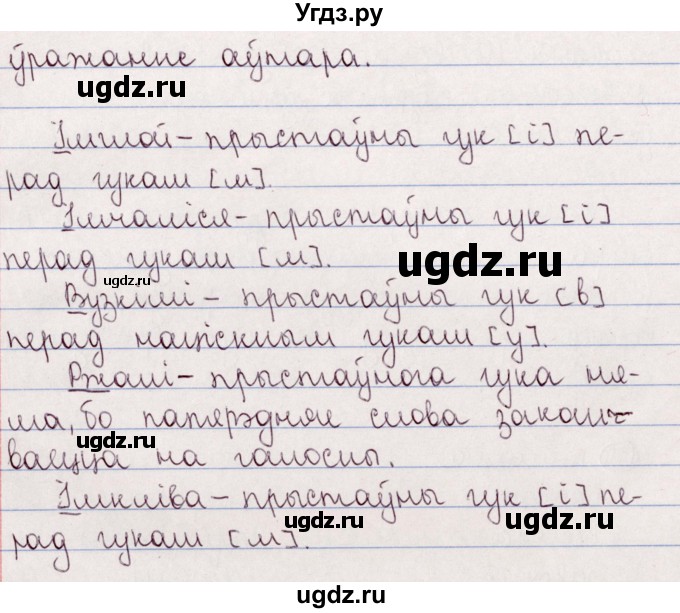 Угдз.ру
ўражание аўтара.
ugdz.ru
Імглой – прыстаўны гук [і] пе-
рад гукам [м].
ugdz.ru
Імчаліся – прыстаўны гук [і]
перад гукам [м].
ugdz.ru
ugdz.ru
Вузкімі – прыстаўны гук [в]
перад націскным гукам [у].
Ржалі – прыстаўнога гука ня-
ма, бо папярэдняе слова закан-
ugdz.ru
ugdz.ru
ваецца на галосны.
Імкліва – прыстаўны гук [і] пе-
ugdz.ru
ugdz.ru
рад гукам [м].
ugdz.ru